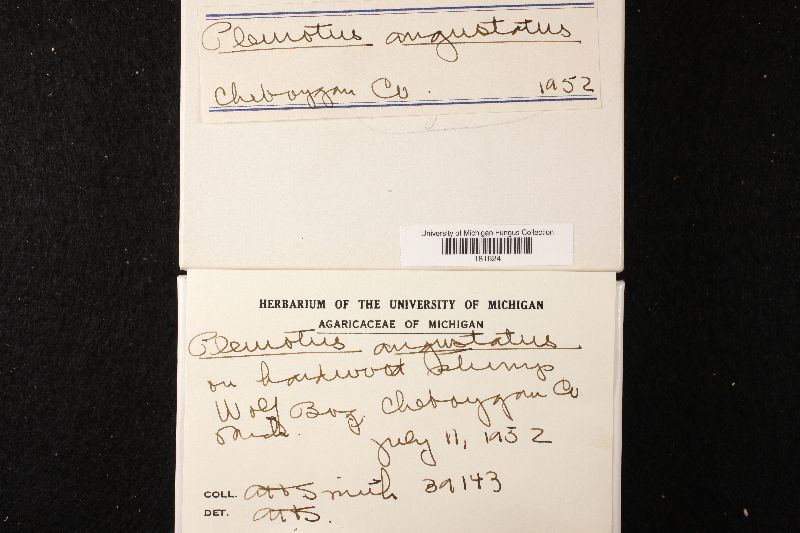 Pleurotus angustatus
Cheboygan Co. 1952
University of Michigan Fungus Collection
HERBARIUM OF THE UNIVERSITY OF MICHIGAN
AGARICACEAE OF MICHIGAN
Pleurotus angustatus
on hardwood stump
Wolf Bog, Cheboygan Co
Mich. July 11, 1952
COLL. AHSmith 39143
DET. AHS.